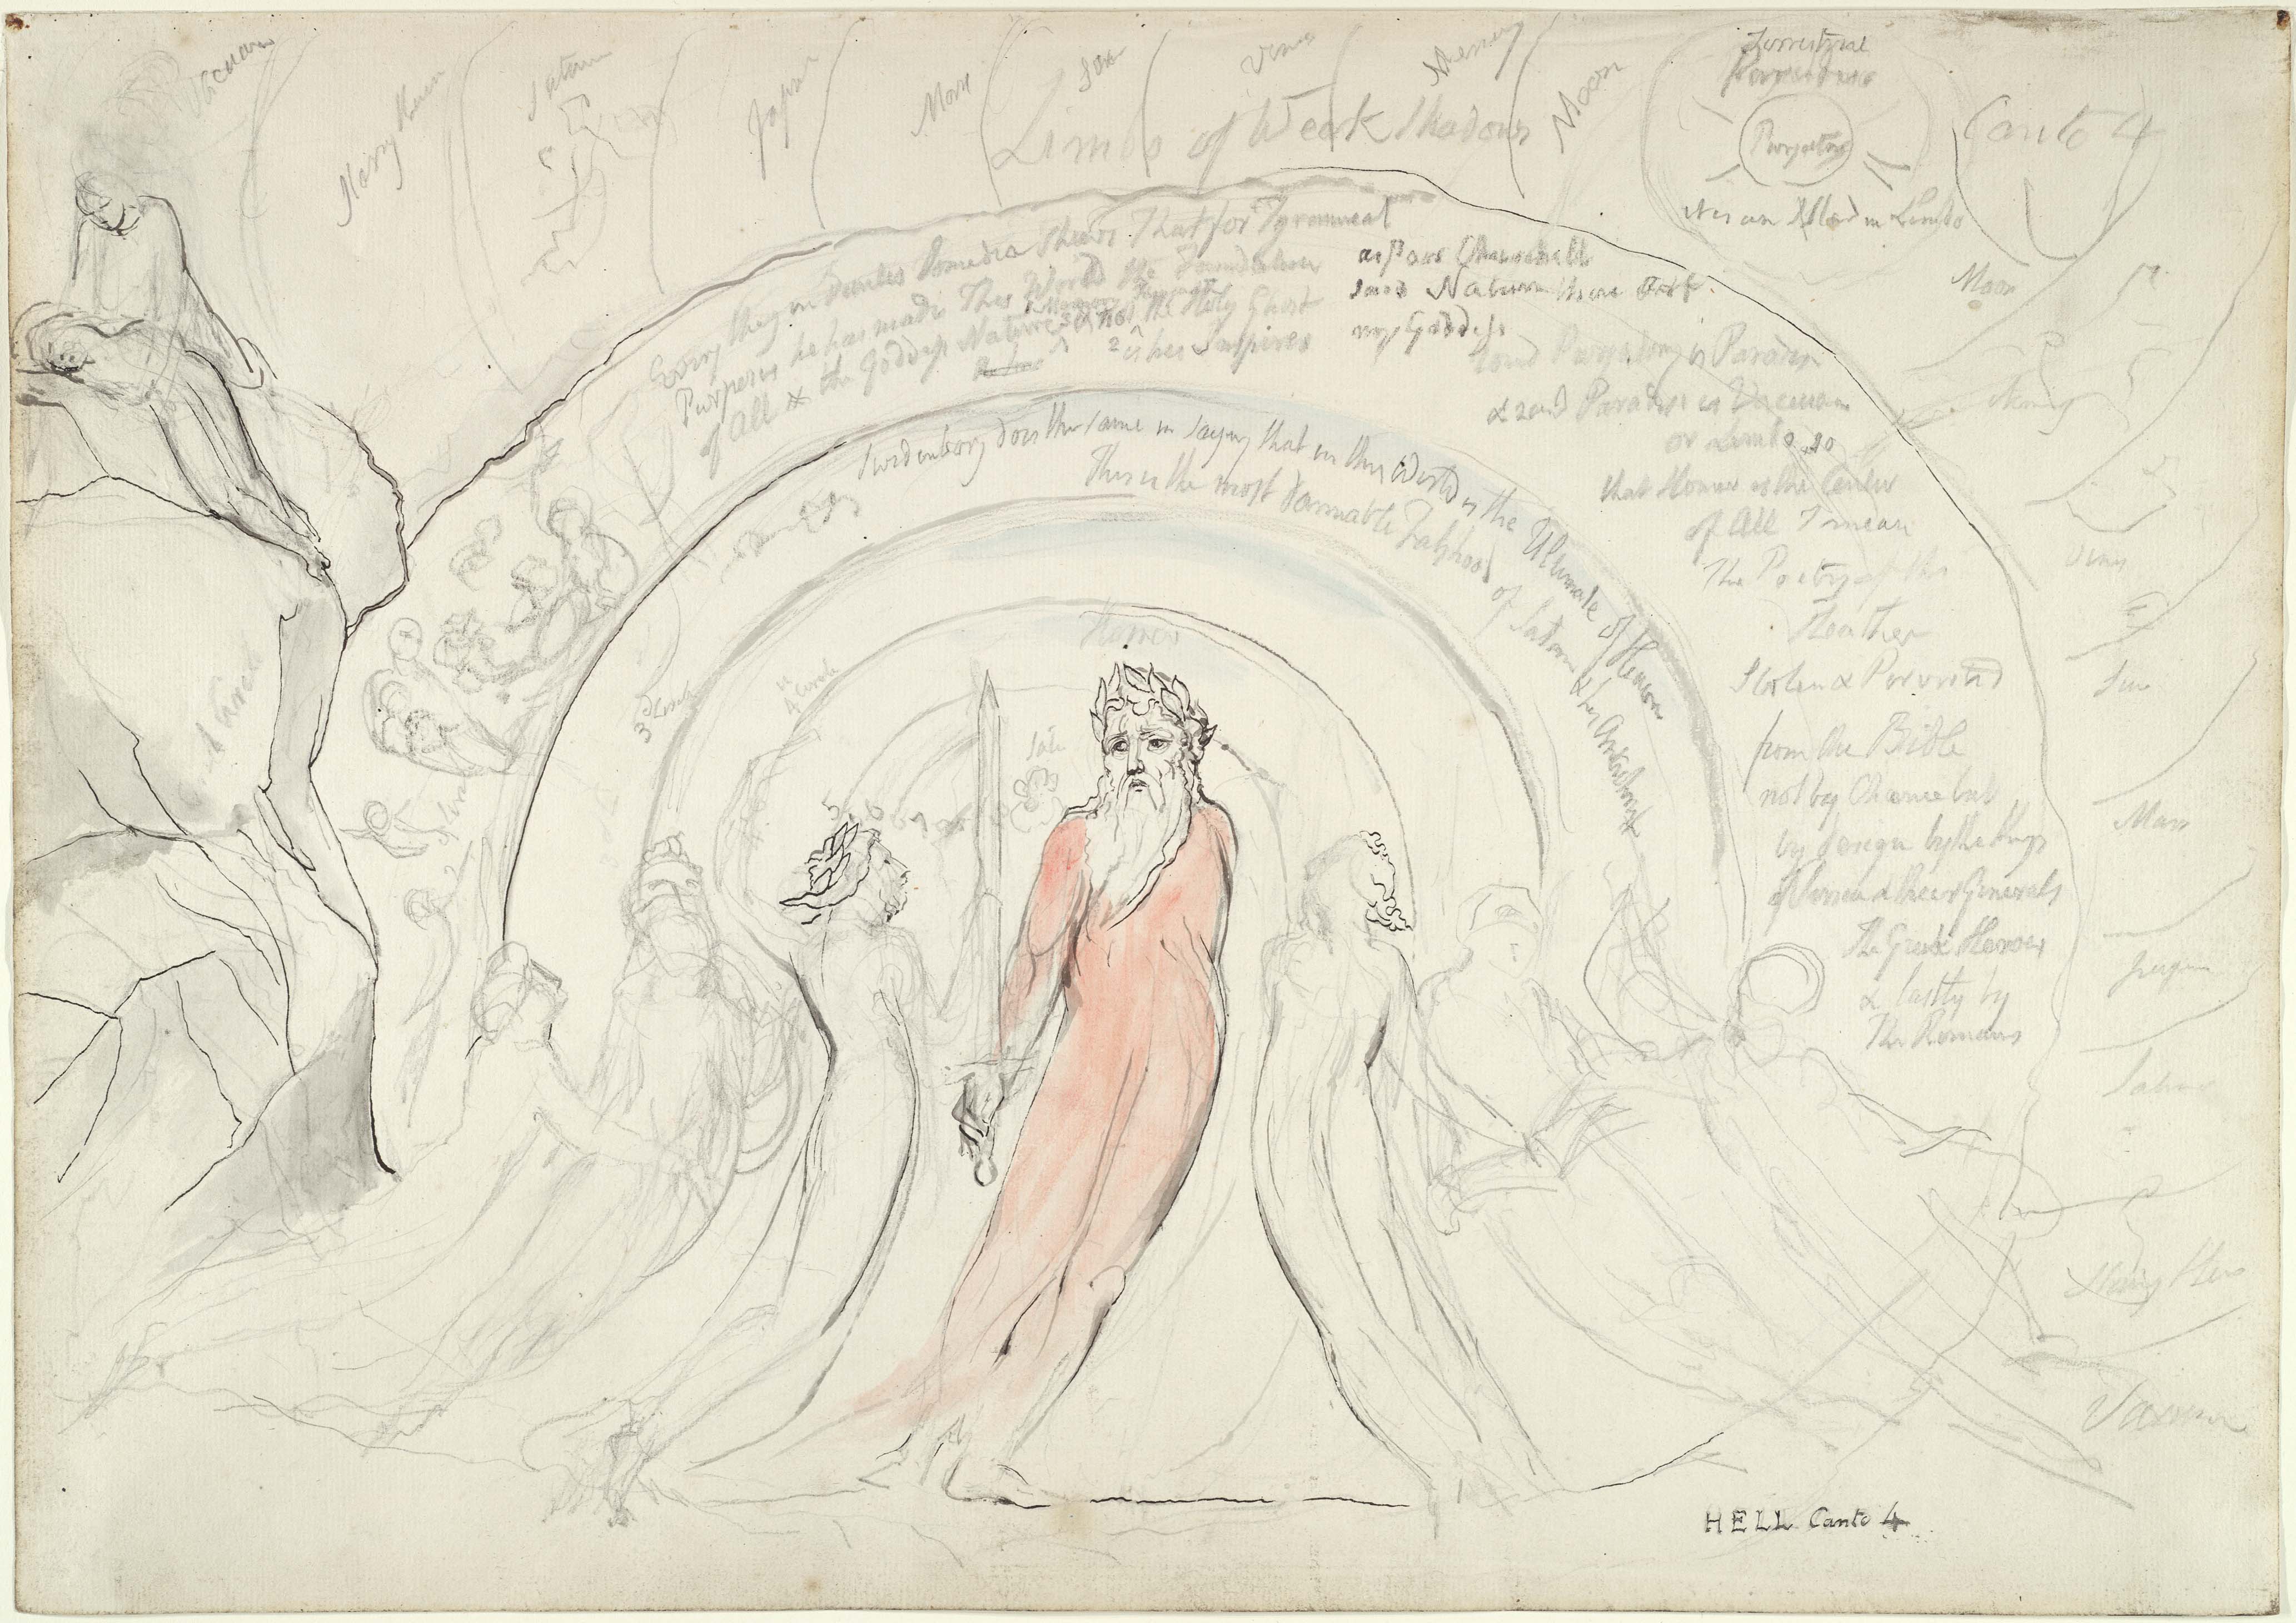 Vacuum
Starry Heaven
Saturn
Jupr
Mars
Sun
Venus
Mercury
Moon
Limbo of Weak Shadows
Terrestrial
Paradise
Purgatory
It is an Island in Limbo
Canto 4
Every thing in Dantes Comedia Shews That for Tyrannical
Purposes he has made This World the Foundation
of All & the Goddess Nature & not the Holy Ghost
Memory
is his Inspirer
as Poor Churchill
said Nature thou art
my Goddess
round Purgatory is Paradise
& round Paradise is Vacuum
or Limbo so
that Homer is the Center
of All I mean
The Poetry of the
Heathen
Stolen & Perverted
from the Bible
not by Chance but
by design by the Kings
of Persia & their Generals
The Greek Heroes
& lastly by
The Romans
Swedenborg does the same in saying that in this World is the Ultimate of Heaven
This is the most damnable Falshood of Satan & his Antichrist
Homer
Satan
3d Circle
4 Circle
5 6 7
Moon
Mercury
Venus
Sun
Mars
Jupiter
Saturn
Starry Heav
Vacuum
HELL Canto 4